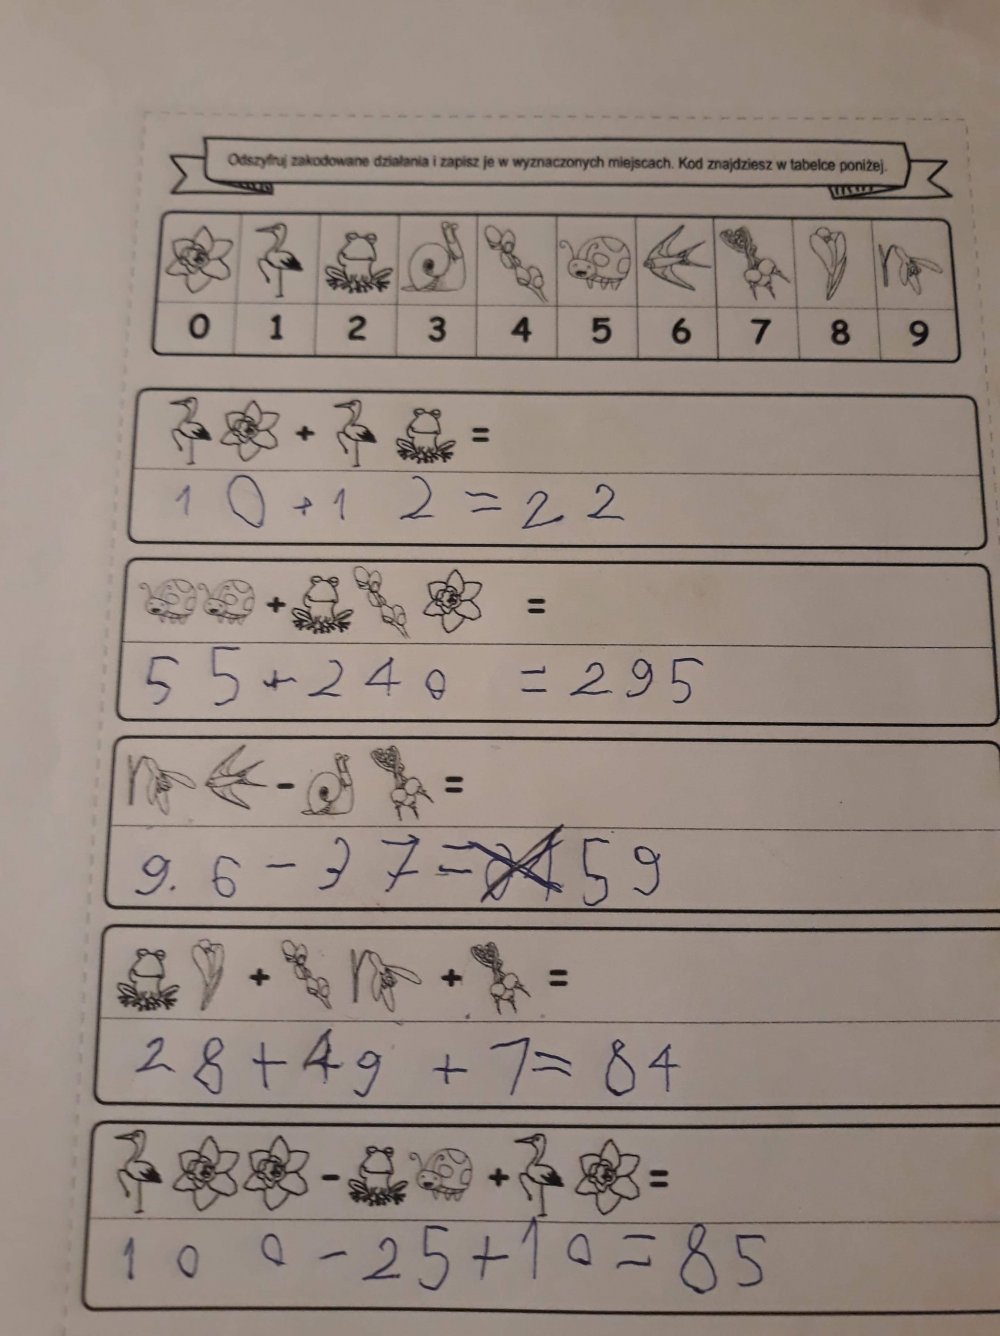 Odszyfruj zakodowane działania i zapisz je w wyznaczonych miejscach. Kod znajdziesz w tabelce poniżej.
0 1 2 3 4 5 6 7 8 9
+ =
10+12=22
+ =
55+240=295
- =
9.6-37=59
+ + =
28+49+7=84
- + =
100-25+10=85